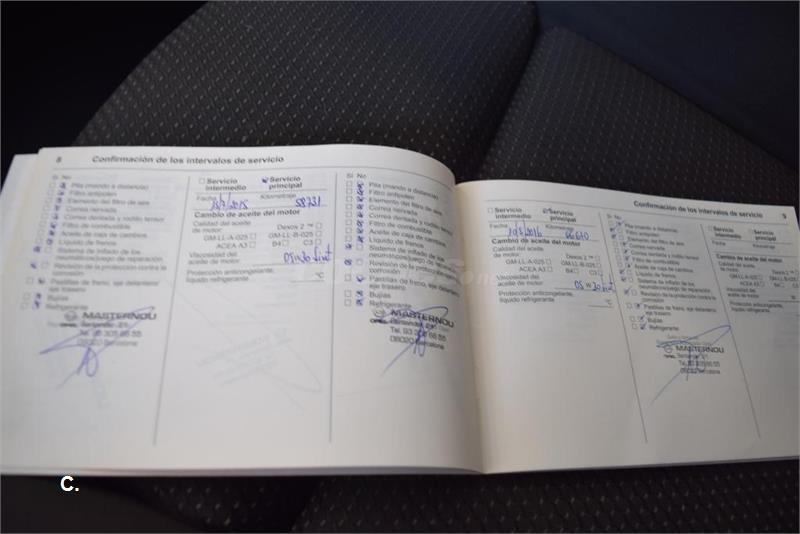 8 Confirmación de los intervalos de servicio
Sí No
Pila (mando a distancia)
Filtro antipolen
Elemento del filtro de aire
Correa nervada
Correa dentada y rodillo tensor
Filtro de combustible
Aceite de caja de cambios
Líquido de frenos
Sistema de inflado de los
neumáticos/juego de reparación
Revisión de la protección contra la
corrosión
Pastillas de freno, eje delantero/
eje trasero
Bujías
Refrigerante
MASTERNOU
OPEL Santander, 21
Tel. 93 305 66 55
08020 Barcelona
Servicio
intermedio
Servicio
principal
Fecha
Kilometraje
2015 58731
Cambio de aceite del motor
Calidad del aceite
de motor:
Dexos 2 ™
GM-LL-A-025 GM-LL-B-025
ACEA A3 B4 C3
Viscosidad del
aceite de motor
Protección anticongelante,
líquido refrigerante °C
Sí No
Pila (mando a distancia)
Filtro antipolen
Elemento del filtro de aire
Correa nervada
Correa dentada y rodillo tensor
Filtro de combustible
Aceite de caja de cambios
Líquido de frenos
Sistema de inflado de los
neumáticos/juego de reparación
Revisión de la protección contra la
corrosión
Pastillas de freno, eje delantero/
eje trasero
Bujías
Refrigerante
MASTERNOU
OPEL Santander, 21
Tel. 93 305 66 55
08020 Barcelona
Confirmación de los intervalos de servicio 9
Servicio
intermedio
Servicio
principal
Fecha
2016 66610
Cambio de aceite del motor
Calidad del aceite
de motor:
Dexos 2 ™
GM-LL-A-025 GM-LL-B-025
ACEA A3 B4 C3
Viscosidad del
aceite de motor
Protección anticongelante,
líquido refrigerante °C
Sí No
Pila (mando a distancia)
Filtro antipolen
Elemento del filtro de aire
Correa nervada
Correa dentada y rodillo tensor
Filtro de combustible
Aceite de caja de cambios
Líquido de frenos
Sistema de inflado de los
neumáticos/juego de reparación
Revisión de la protección contra la
corrosión
Pastillas de freno, eje delantero/
eje trasero
Bujías
Refrigerante
MASTERNOU
OPEL Santander, 21
Tel. 93 305 66 55
08020 Barcelona
Servicio
intermedio
Servicio
principal
Fecha
Kilometraje
Cambio de aceite del motor
Calidad del aceite
de motor:
Dexos 2
GM-LL-A-025
ACEA A3 B4
Viscosidad del
aceite de motor
Protección anticongelante,
líquido refrigerante
C.